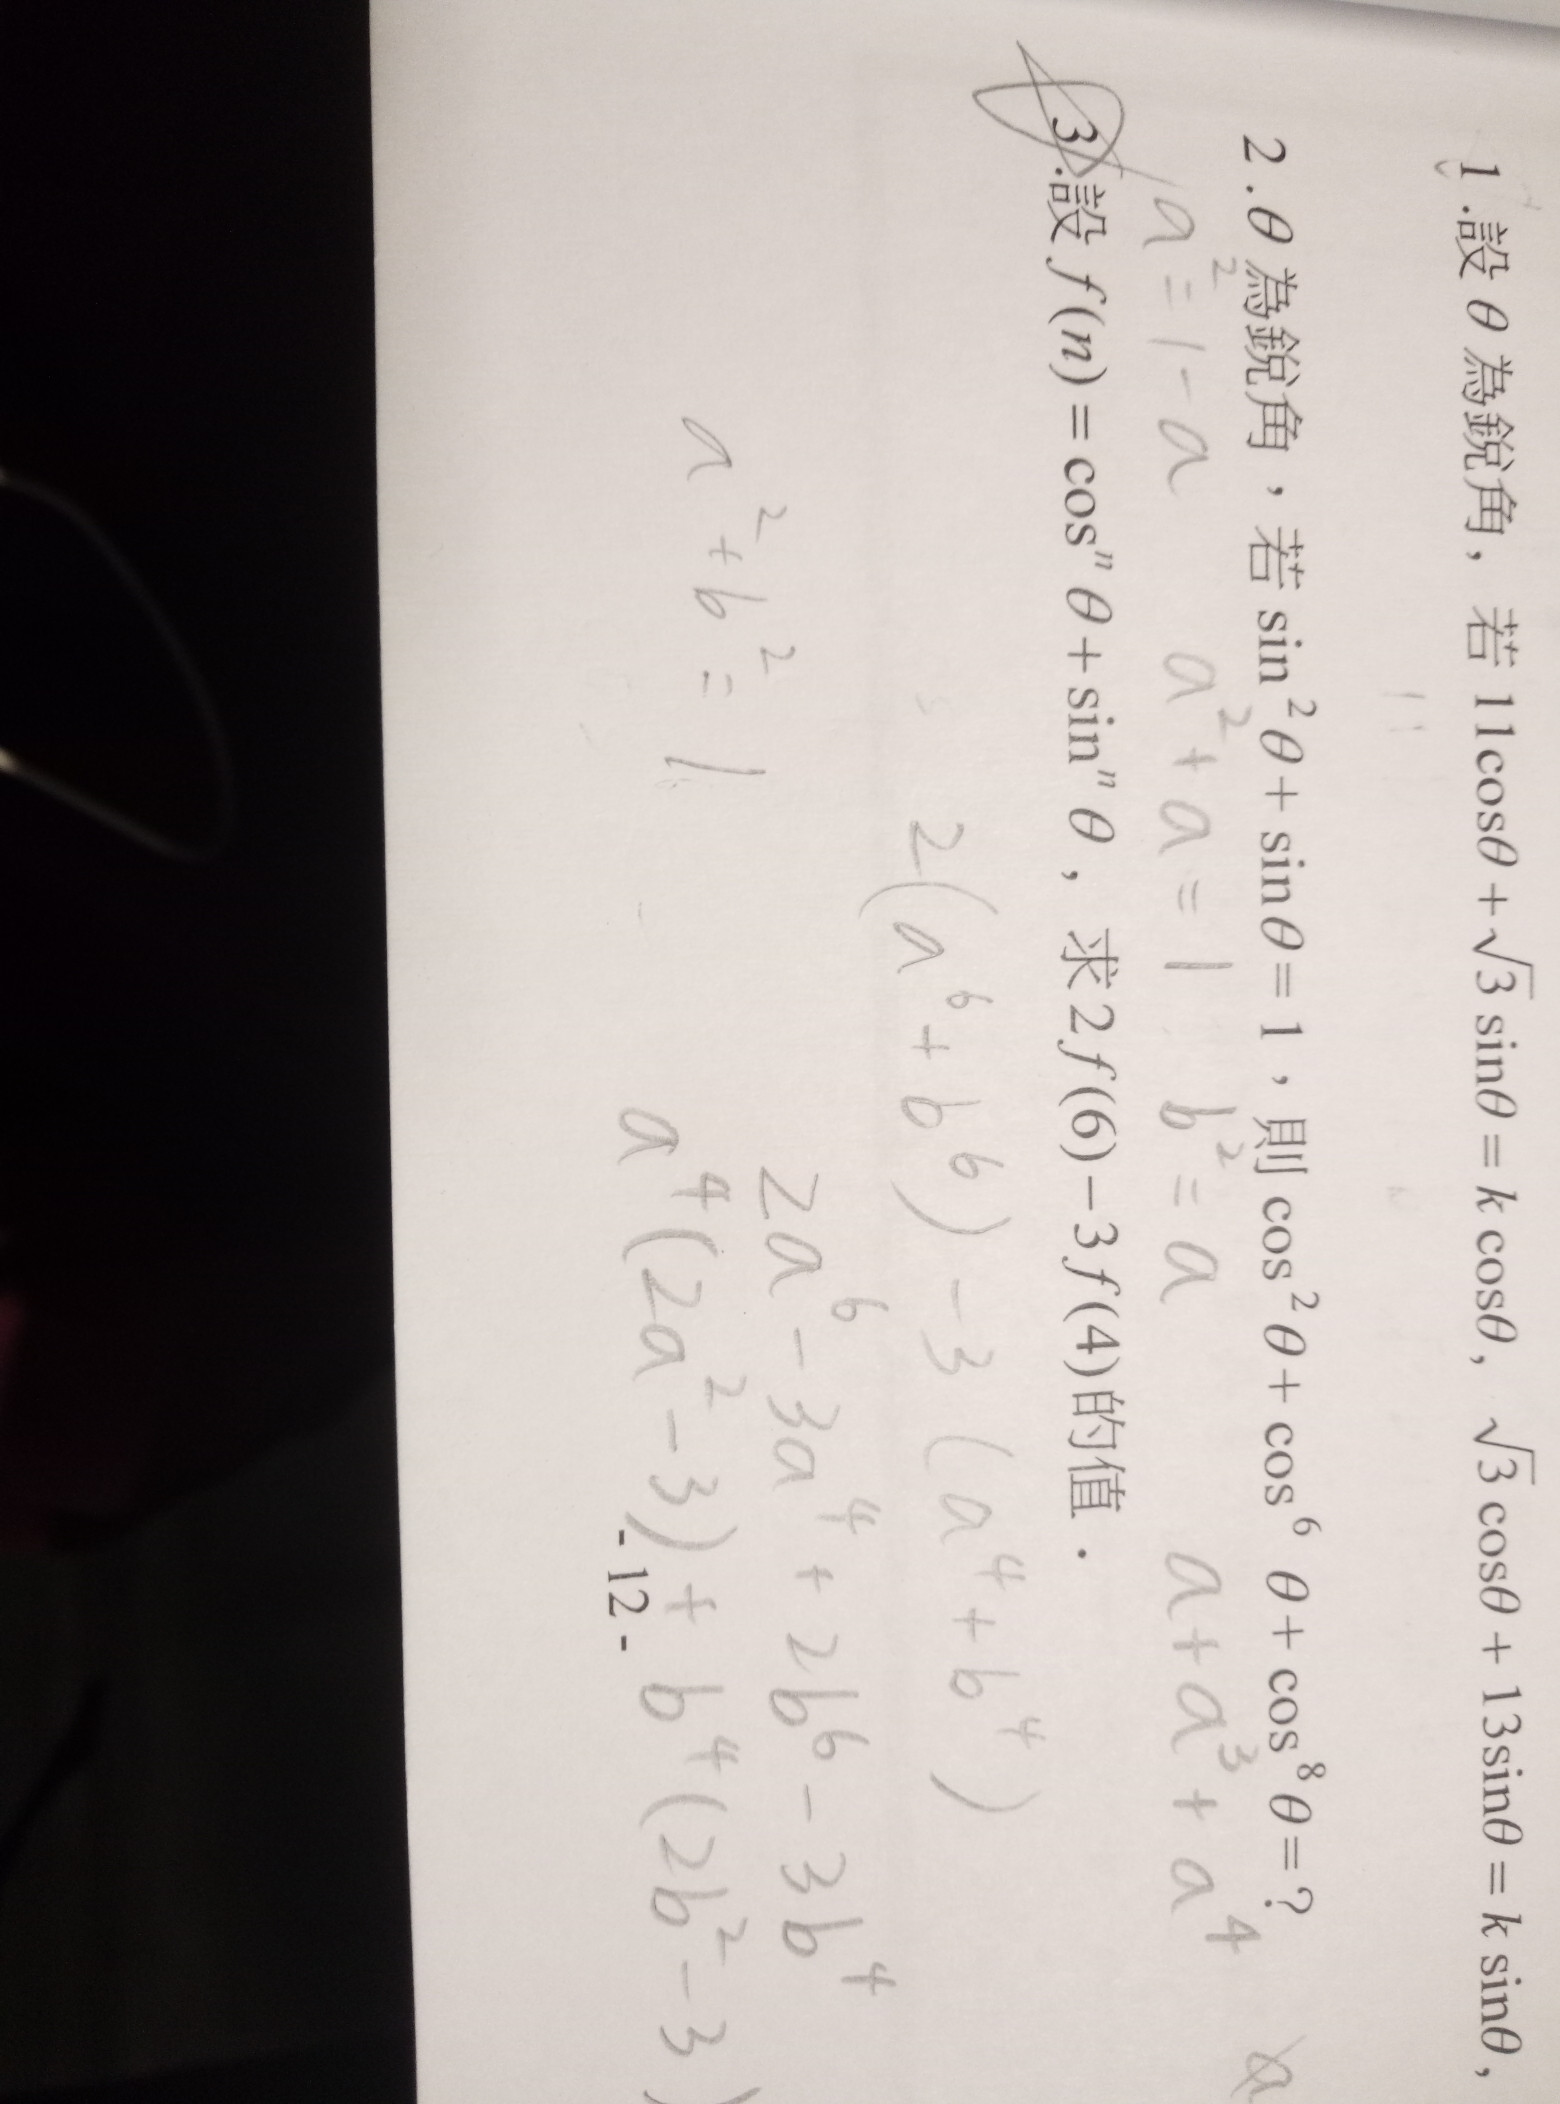 1.設 θ 為銳角，若 11cosθ+√3 sinθ=k cosθ，√3 cosθ+13sinθ=k sinθ，
2.θ 為銳角，若 sin²θ+sinθ=1，則 cos²θ+cos⁶θ+cos⁸θ=？
a²=1-a a²+a=1 b²=a a+a³+a⁴
3.設 f(n)=cosⁿθ+sinⁿθ，求2f(6)-3f(4)的值．
2(a⁶+b⁶)-3(a⁴+b⁴)
2a⁶-3a⁴+2b⁶-3b⁴
a²+b²=1
a⁴(2a²-3)+b⁴(2b²-3)
-12-